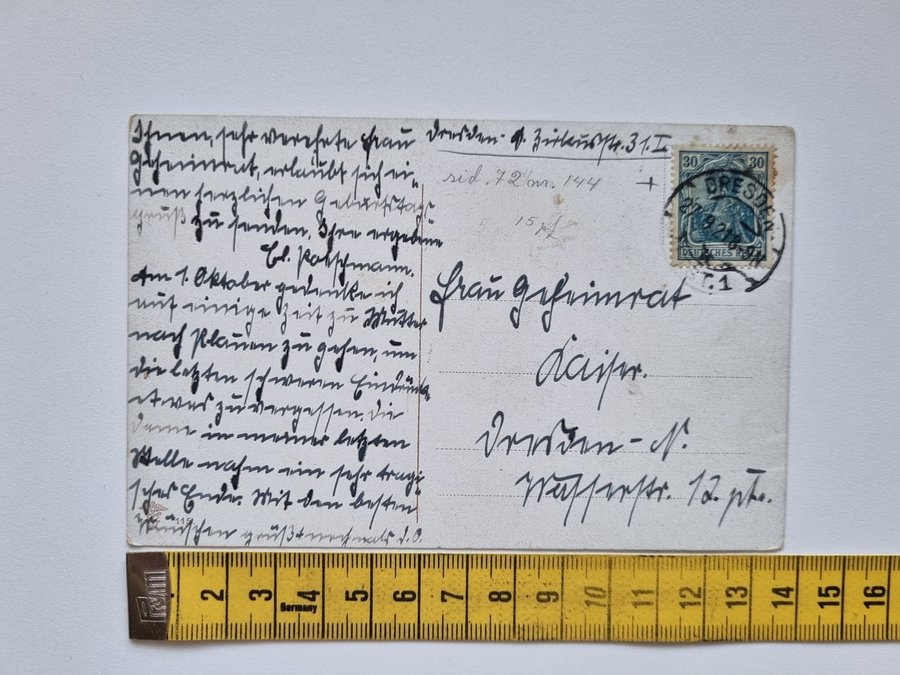 Ihnen, sehr verehrte Frau
Geheimrat, erlaubt sich ei-
nen herzlichen Geburtstags-
gruß zu senden, Ihre ergebene
El. Potschmann.
Am 1. Oktober gedenke ich
auf einige Zeit zu Mutter
nach Plauen zu gehen, um
die letzten schweren Eindrücke
etwas zu vergessen. Die
Dame in meiner letzten
Stelle nahm ein sehr tragi-
sches Ende. Mit den besten
Wünschen grüßt nochmals d. O.
Dresden 31. II
72 nr. 144
15 pf
30 30
DEUTSCHES REICH
DRESDEN
Frau Geheimrat
Kaiser.
Dresden-N.
Wasserstr. 12. ptr.
2 3 4 5 6 7 8 9 10 11 12 13 14 15 16
Germany